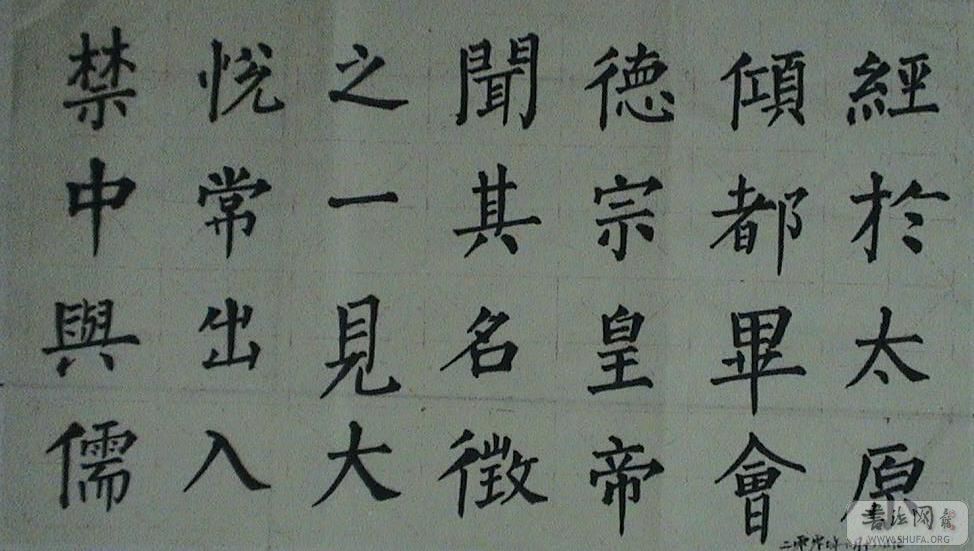 經於太原
傾都畢會
德宗皇帝
聞其名徵
之一見大
悅常出入
禁中與儒
书法网
WWW.SHUFA.ORG